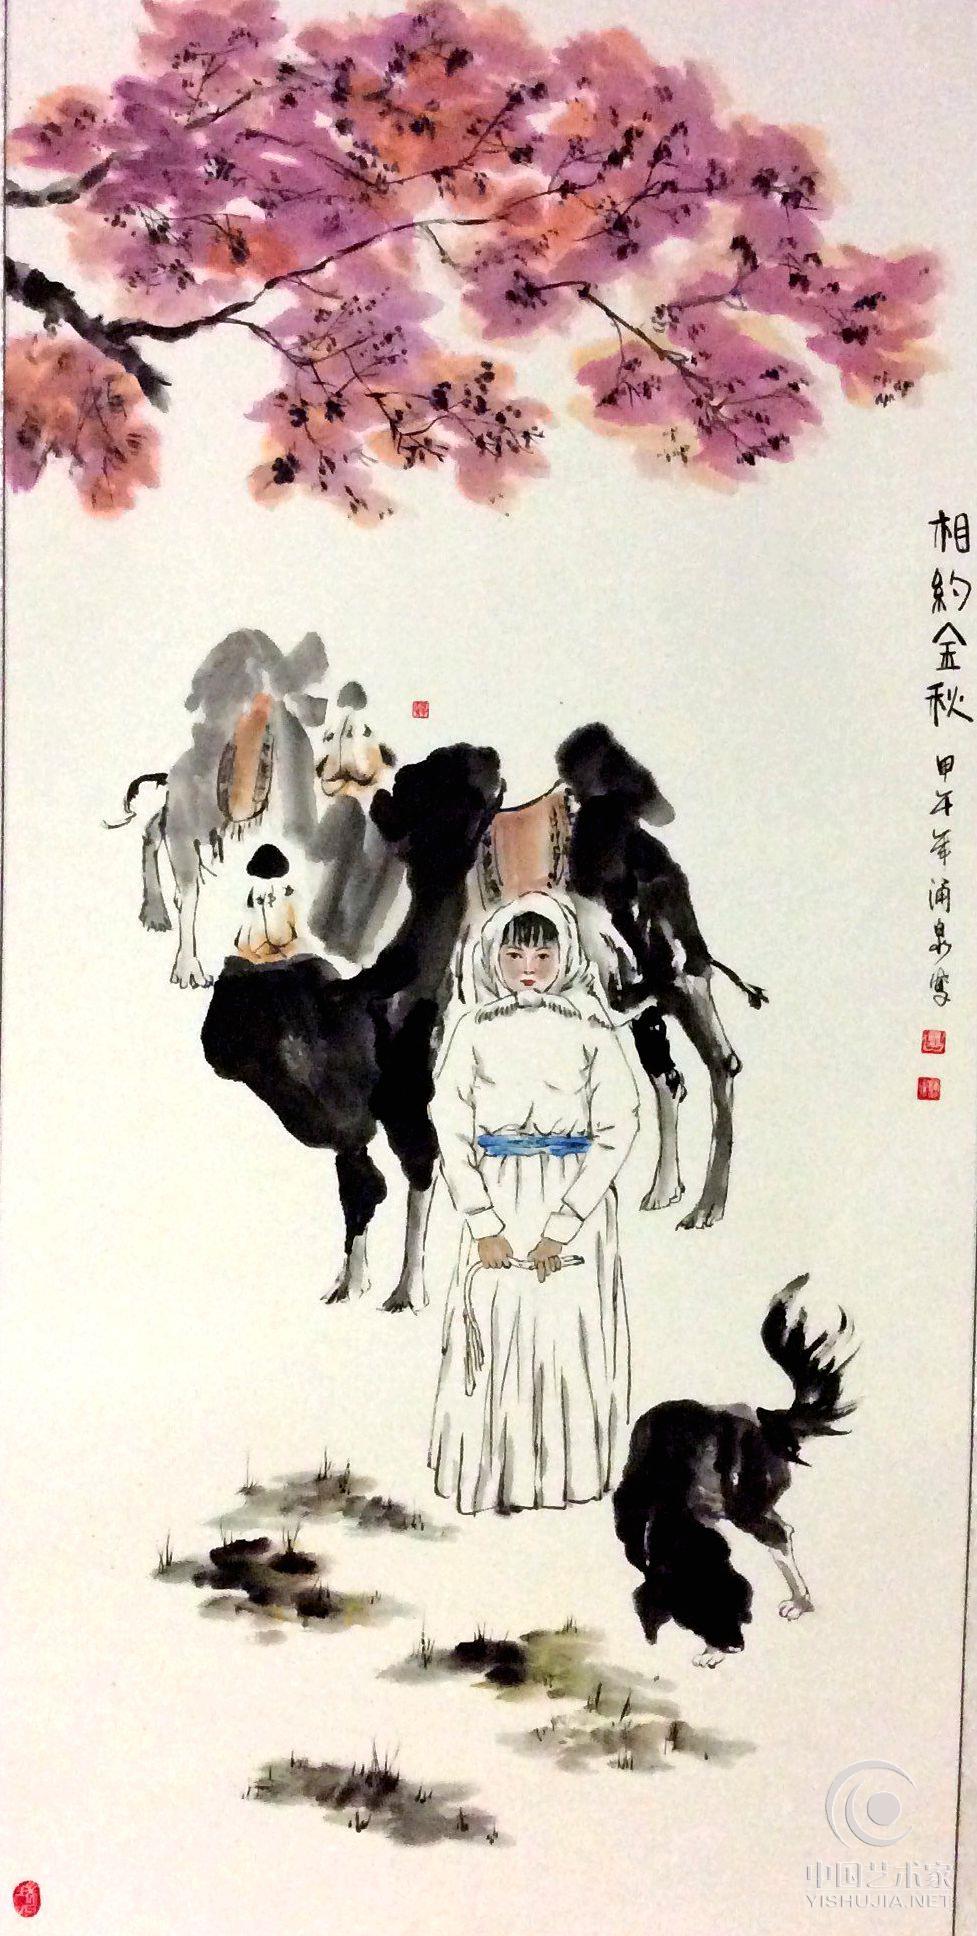 相約金秋
甲午年涌泉写
中国艺术家
YISHUJIA.NET